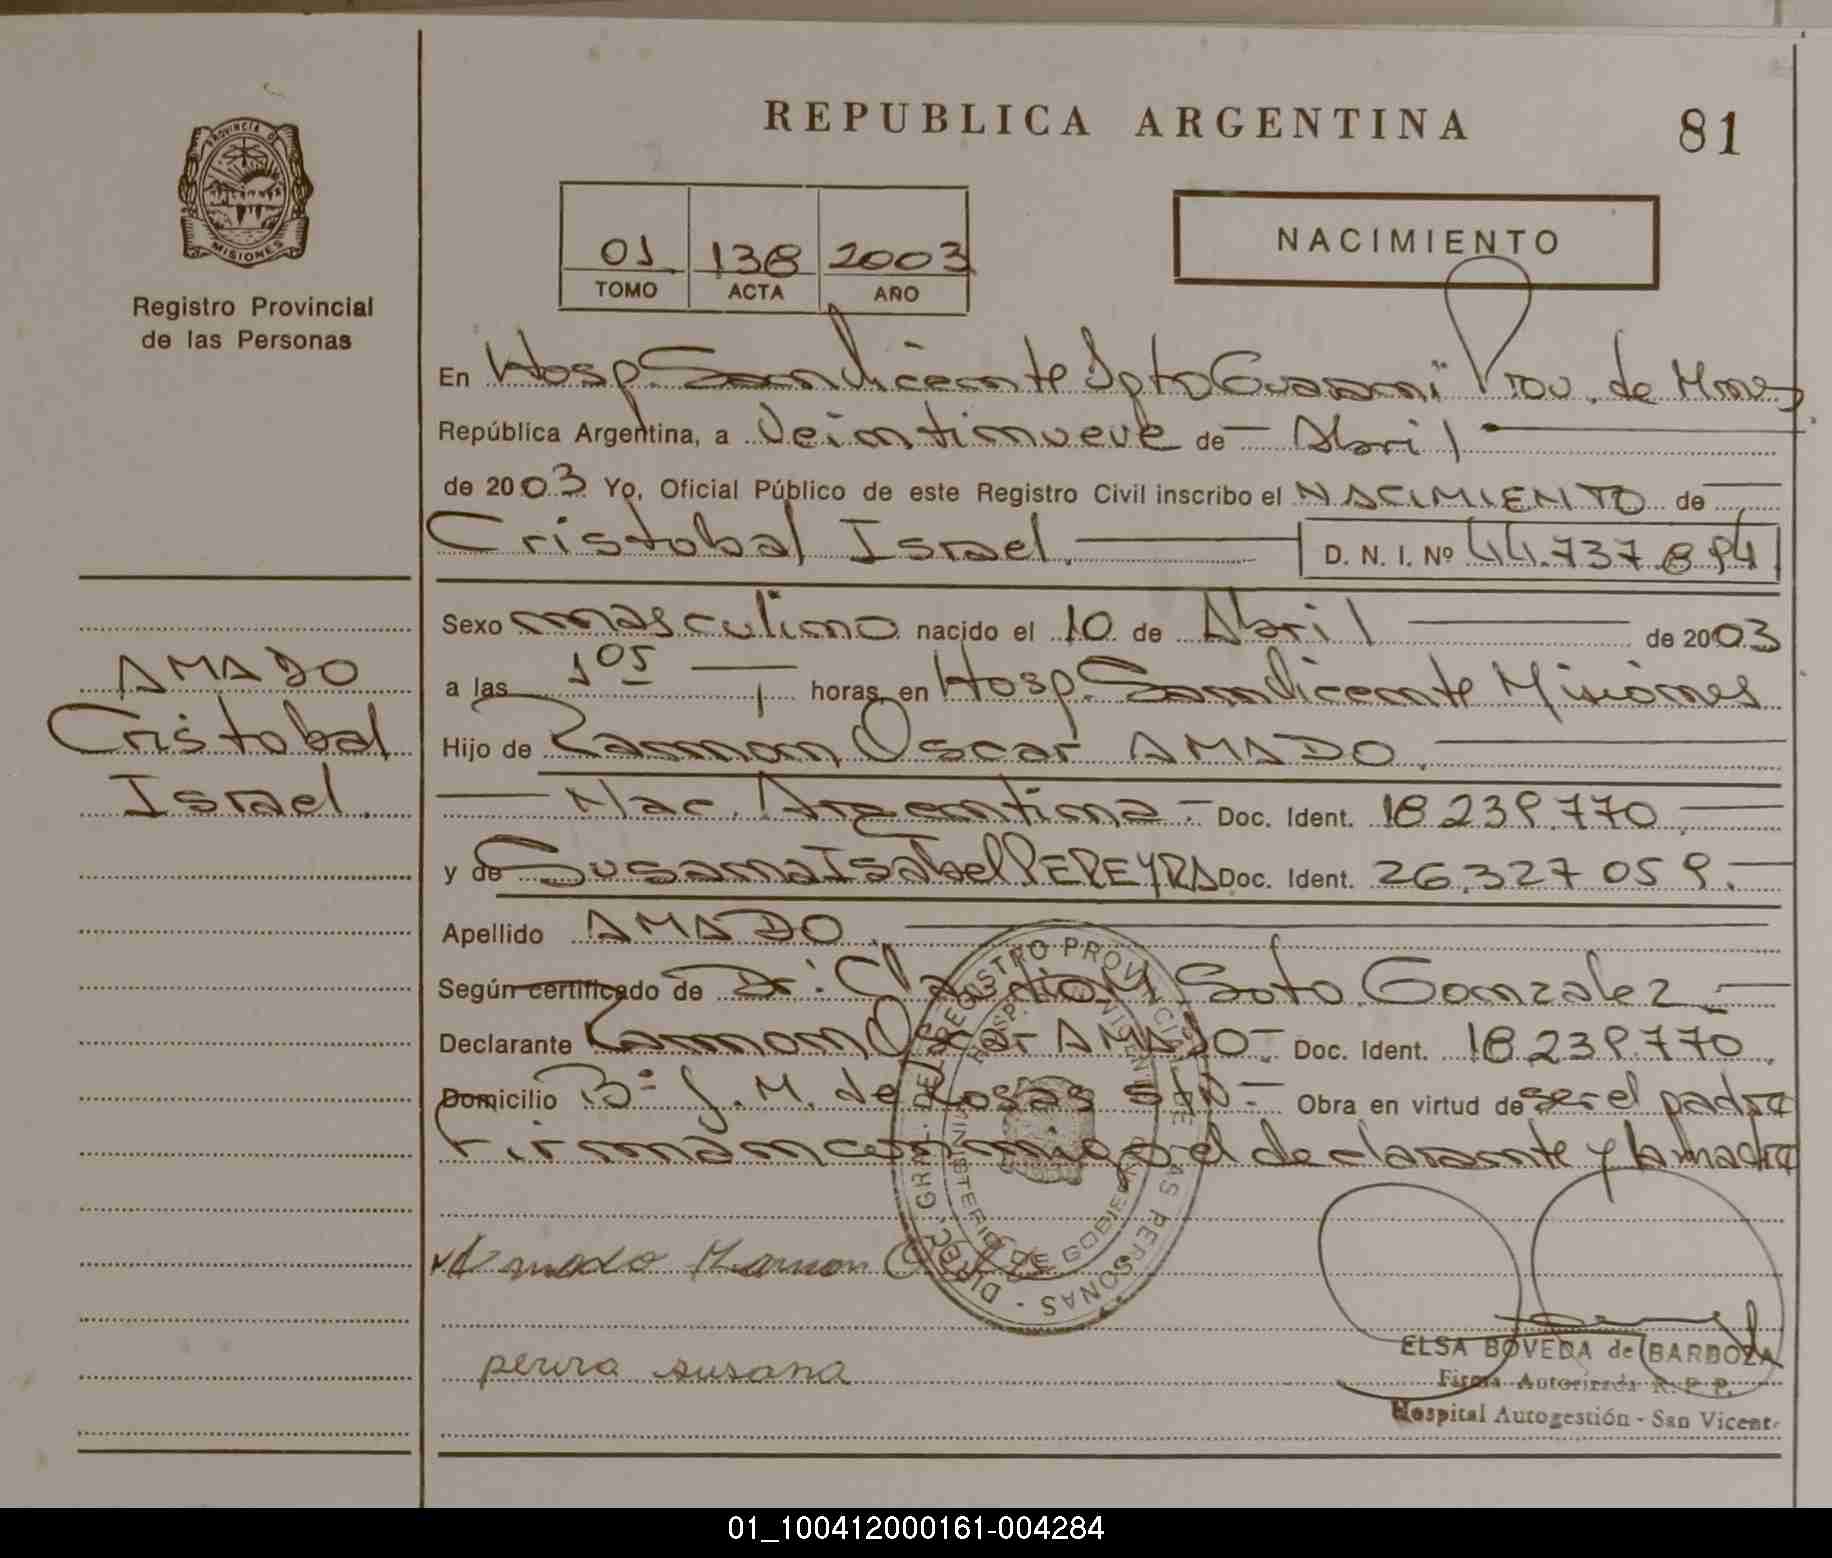 REPUBLICA ARGENTINA
81
PROVINCIA DE
MISIONES
Registro Provincial
de las Personas
01 138 2003
TOMO ACTA AÑO
NACIMIENTO
En Hosp. San Vicente Dpto Guaraní Prov. de Mnes
República Argentina, a Veintinueve de Abril
de 2003 Yo, Oficial Público de este Registro Civil inscribo el NACIMIENTO de
Cristobal Israel D. N. I. Nº 44.737.894
Sexo masculino nacido el 10 de Abril de 2003
a las 1 05 horas en Hosp. San Vicente Misiones
Hijo de Ramon Oscar AMADO.
Nac. Argentina - Doc. Ident. 18.239.770
y de Susana Isabel PEREYRA Doc. Ident. 26.327.059.
Apellido AMADO.
Según certificado de Dr: Claudio M. Soto Gonzalez
Declarante Ramon Oscar AMADO - Doc. Ident. 18.239.770.
Domicilio Bº J. M. de Rosas S/N - Obra en virtud de ser el padre
Firman conmigo el declarante y la madre
AMADO
Cristobal
Israel.
DIREC. GRAL. DEL REGISTRO PROVINCIAL DE LAS PERSONAS
MINISTERIO DE GOBIERNO
Amado Ramon
pereira susana
ELSA BOVEDA de BARBOZA
Firma Autorizada R. P. P.
Hospital Autogestión - San Vicente
01_100412000161-004284